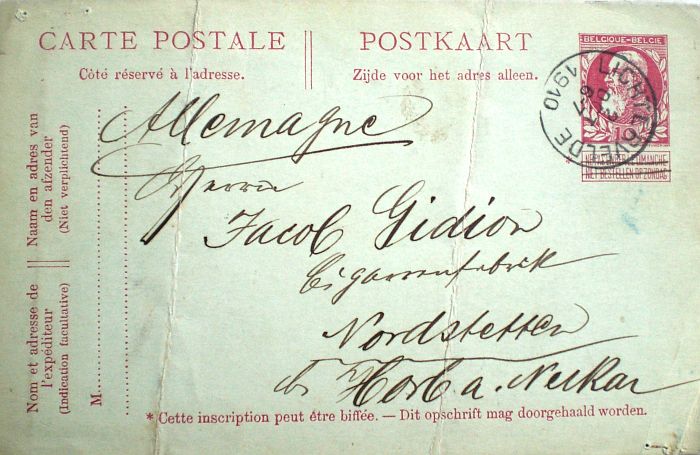 CARTE POSTALE
POSTKAART
Côté réservé à l'adresse.
Zijde voor het adres alleen.
BELGIQUE-BELGIE
LICHTERVELDE
1910
NE PAS LIVRER LE DIMANCHE
NIET BESTELLEN OP ZONDAG
Naam en adres van
den afzender
(Niet verplichtend)
Nom et adresse de
l'expéditeur
(Indication facultative)
M
Allemagne
Herrn
Jacob Gidion
Cigarrenfabrik
Nordstetten
b/ Horb a. Neckar
* Cette inscription peut être biffée. — Dit opschrift mag doorgehaald worden.